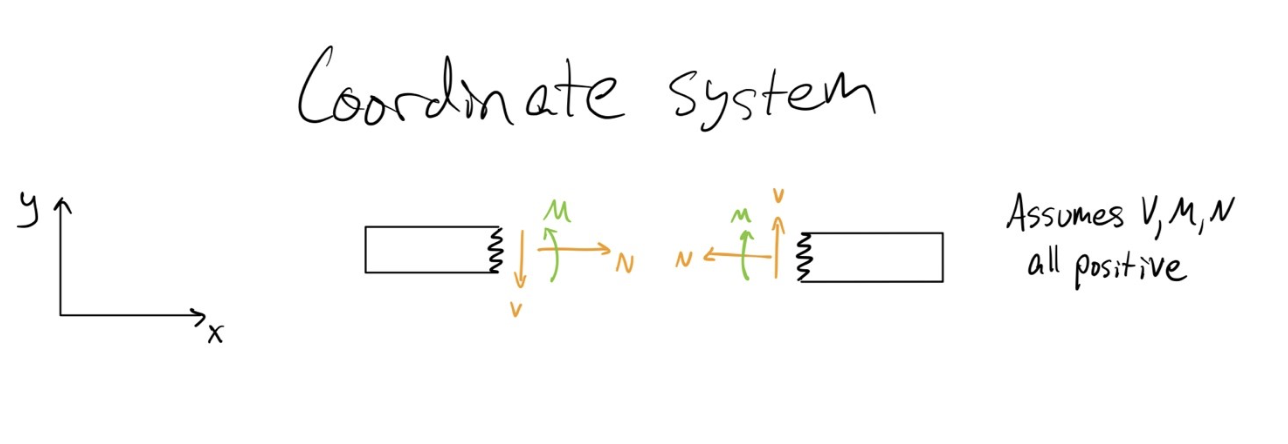 Coordinate system
y
x
M
N
V
V
M
N
Assumes V, M, N
all positive